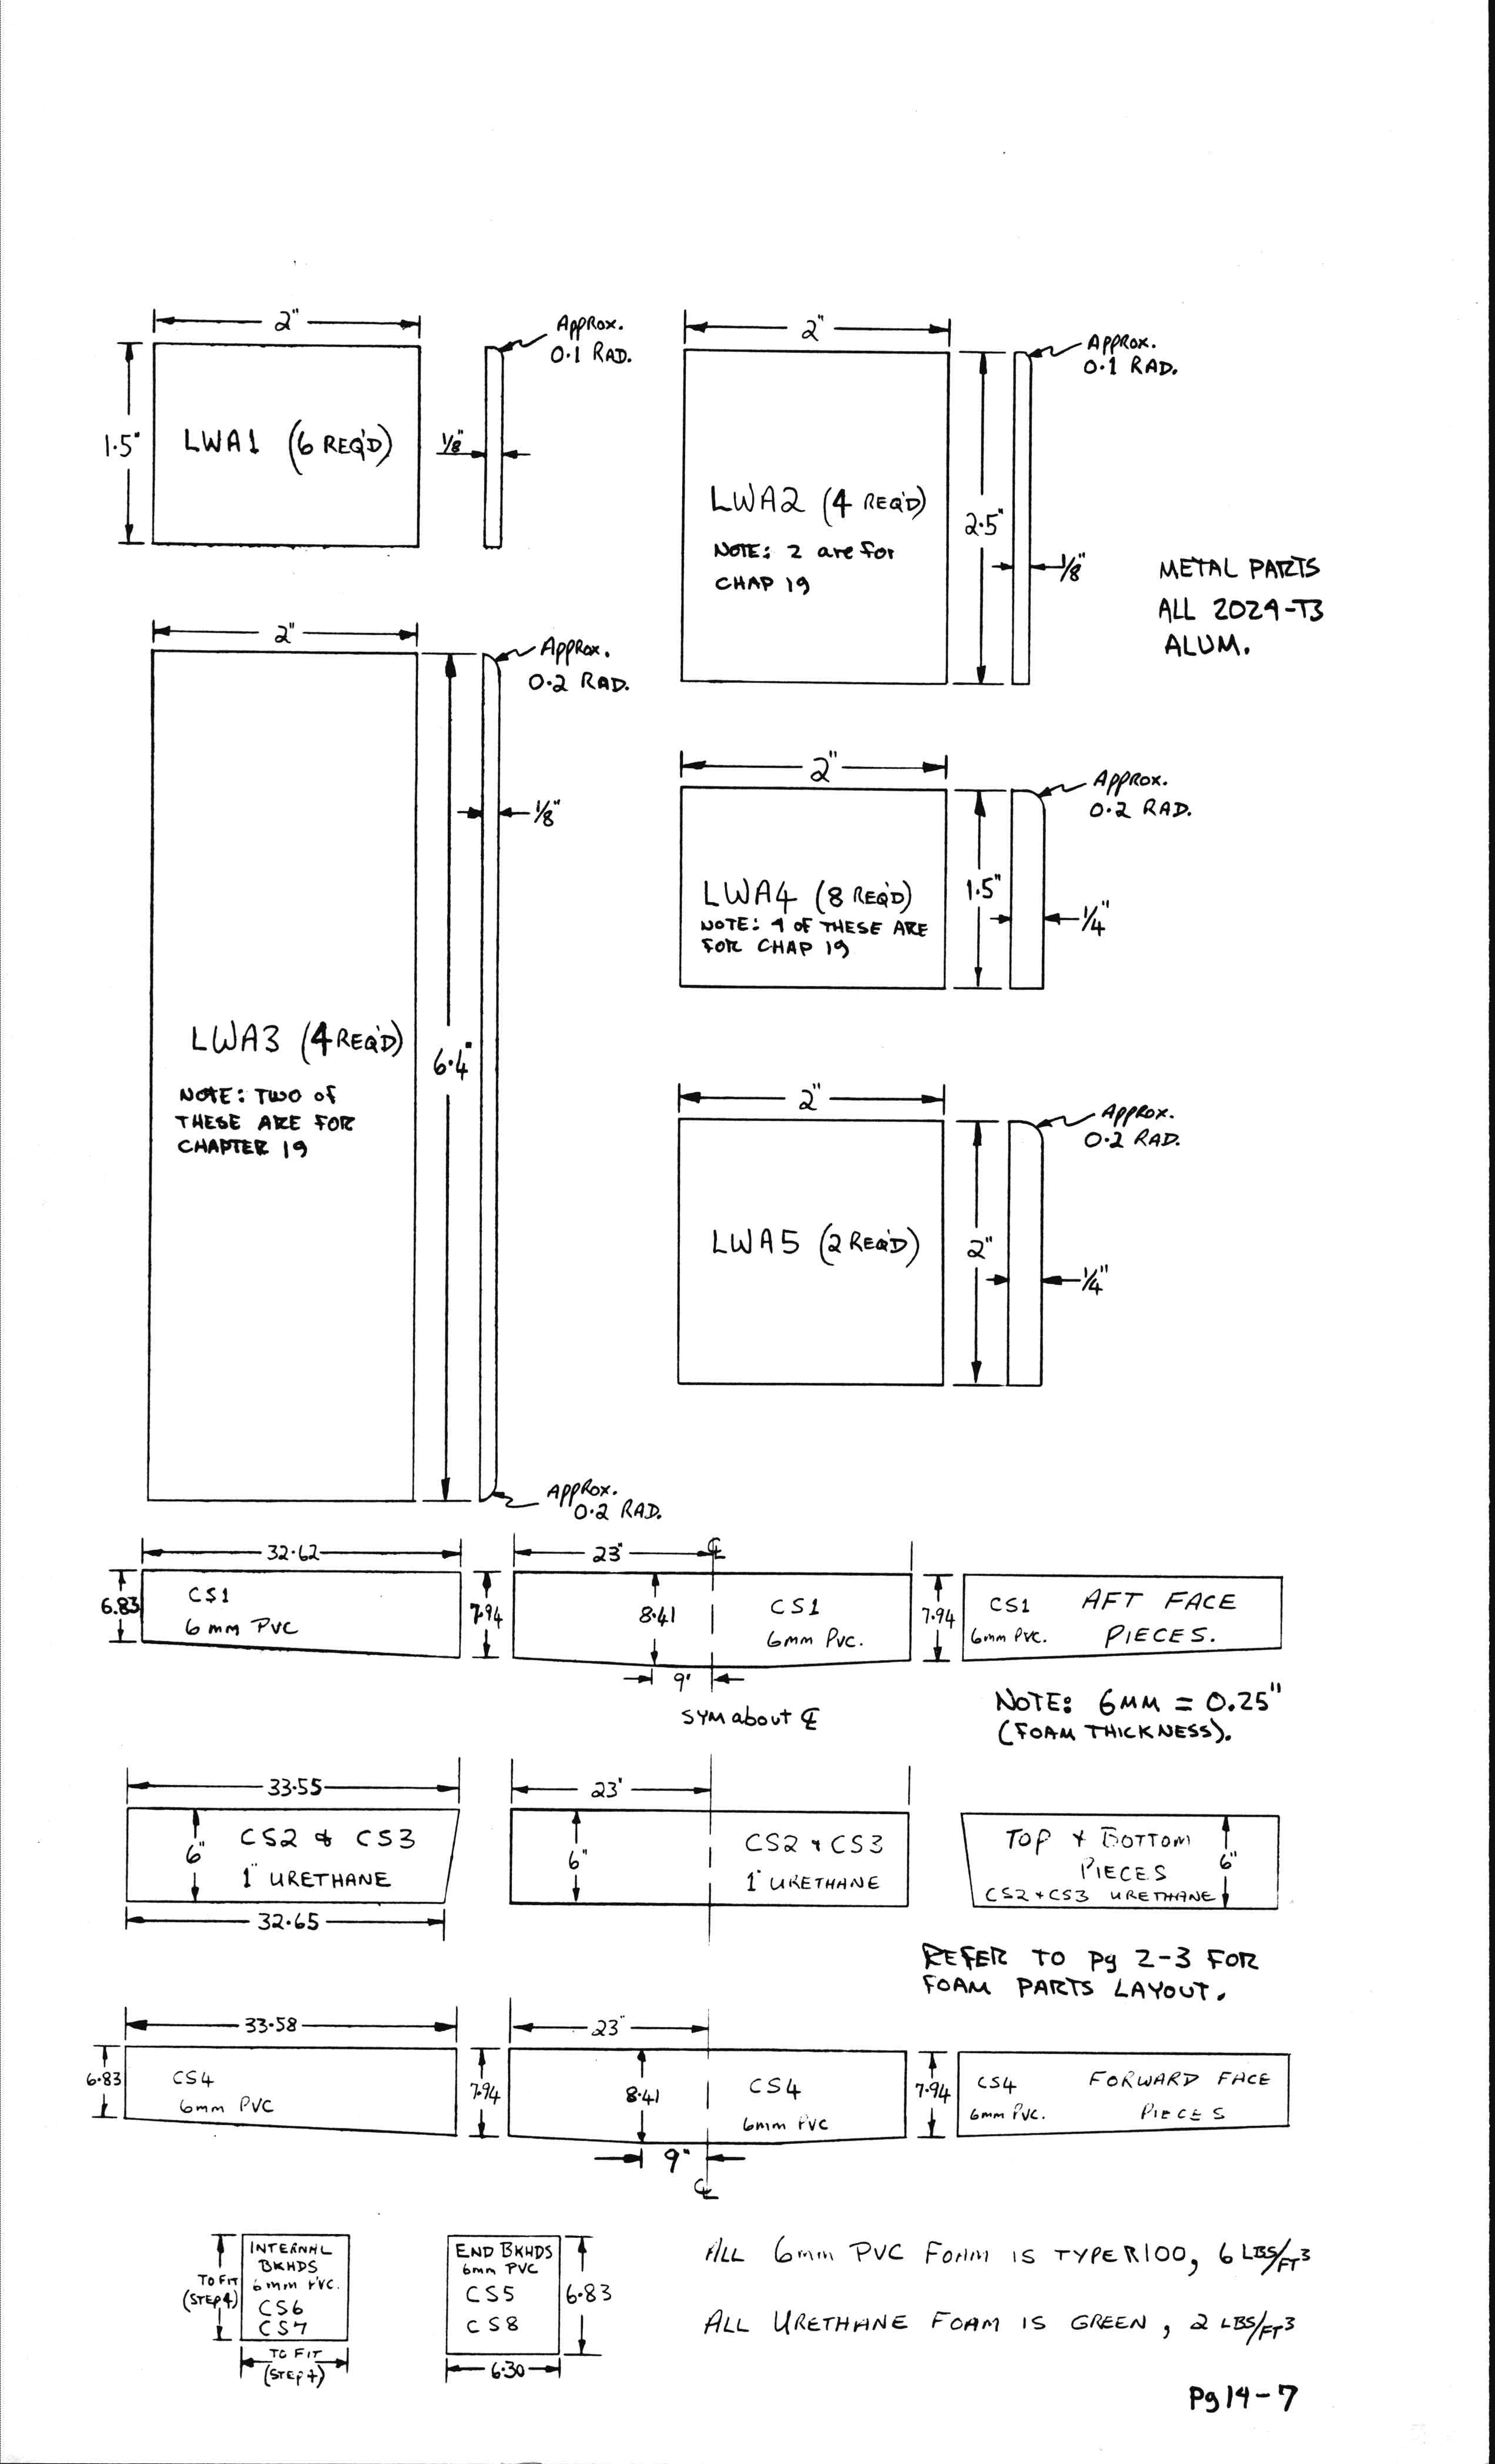 2"
Approx.
0.1 RAD.
1.5"
LWA1 (6 REQ'D)
1/8"
2"
APPROX.
0.1 RAD.
LWA2 (4 REQ'D)
NOTE: 2 are for
CHAP 19
2.5"
1/8"
METAL PARTS
ALL 2024-T3
ALUM.
2"
Approx.
0.2 RAD.
1/8"
LWA3 (4 REQ'D)
NOTE: TWO of
THESE ARE FOR
CHAPTER 19
6.4"
APPROX.
0.2 RAD.
2"
APPROX.
0.2 RAD.
LWA4 (8 REQ'D)
NOTE: 4 OF THESE ARE
FOR CHAP 19
1.5"
1/4"
2"
APPROX.
0.2 RAD.
LWA5 (2 REQ'D)
2"
1/4"
32.62
6.83
CS1
6mm PVC
7.94
23"
℄
8.41
CS1
6mm PVC.
9"
SYM about ℄
7.94
CS1
6mm PVC.
AFT FACE
PIECES.
NOTE: 6MM = 0.25"
(FOAM THICKNESS).
33.55
6"
CS2 & CS3
1" URETHANE
32.65
23"
6"
CS2 & CS3
1" URETHANE
TOP & BOTTOM
PIECES
CS2 + CS3 URETHANE
6"
REFER TO Pg 2-3 FOR
FOAM PARTS LAYOUT.
33.58
6.83
CS4
6mm PVC
7.94
23"
8.41
CS4
6mm PVC
9"
℄
7.94
CS4
6mm PVC.
FORWARD FACE
PIECES
TO FIT
(STEP 4)
INTERNAL
BKHDS
6mm PVC.
CS6
CS7
TO FIT
(STEP 4)
END BKHDS
6mm PVC
CS5
CS8
6.83
6.30
ALL 6mm PVC FOAM IS TYPE R100, 6 LBS/FT3
ALL URETHANE FOAM IS GREEN, 2 LBS/FT3
Pg 14-7